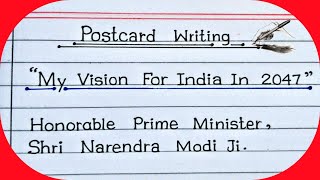 Postcard Writing
"My Vision For India In 2047"
Honorable Prime Minister,
Shri Narendra Modi Ji.